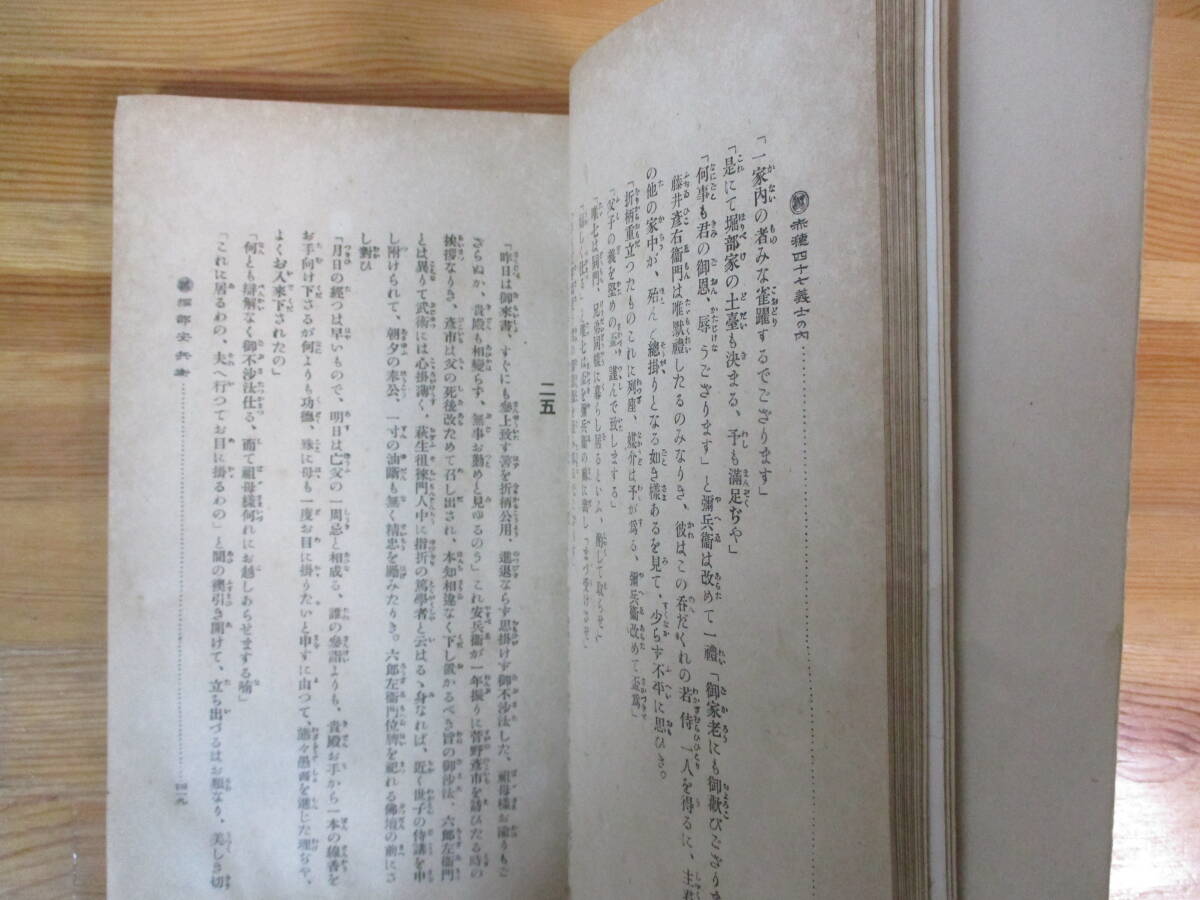 赤穗四十七義士の內
「一家內の者みな雀躍するでござります」
「是にて堀部家の土臺も決まる、予も滿足ぢや」
「何事も君の御恩、辱うござります」と彌兵衞は改めて一禮「御家老にも御歡びござりま
藤井彥右衞門は唯默禮したるのみなりき、彼はこの吞だくれの若侍一人を得るに、主君
の他の家中が、殆んど總掛りとなる如き樣あるを見て、少らず不平に思ひき。
「折柄重立つたものこれに列座、媒介は予が爲る、彌兵衞改めて盃爲」
「父子の義を堅めの盃、謹んで致しまする」
二五
「昨日は御來書、すぐにも參上致す筈を折柄公用、進退ならず思掛けず御不沙汰した、祖母樣お渝りもご
ざらぬか、貴殿も相變らず、無事お勤めと見ゆるのう」これ安兵衞が一年振りに菅野彥市を訪ひたる時の
挨拶なりき、彥市は父の死後改ためて召し出され、本知相違なく下し置かるべき旨の御沙汰、六郎左衞門
とは異りて武術には心掛薄く、萩生徂徠門人中に指折の篤學者と云はるゝ身なれば、近く世子の侍講を申
し附けられて、朝夕の奉公、一寸の油斷も無く精忠を勵みたりき。六郎左衞門位牌を祀れる佛壇の前にさ
し對ひ
「月日の經つは早いもので、明日は亡父の一周忌と相成る、誰の參詣よりも、貴殿お手から一本の線香を
お手向け下さるが何よりも功德、殊に母も一度お目に掛りたいと申すに由つて、態々愚書を進じた理ぢや、
よくお入來下されたの」
「何とも辯解なく御不沙汰仕る、而て祖母樣何れにお越しあらせまする喃」
「これに居るわの、夫へ行つてお目に掛るわの」と間の襖引き開けて、立ち出づるはお順なり、美しき切
堀部安兵衞
四一九